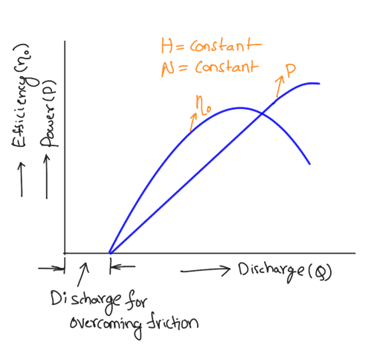 H = constant
N = constant
P
η₀
Efficiency (η₀)
Power (P)
Discharge (Q)
Discharge for
overcoming friction